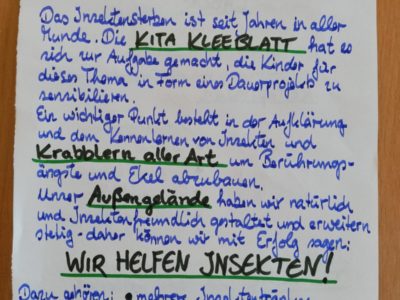 Das Insektensterben ist seit Jahren in aller
Munde. Die KITA KLEEBLATT hat es
sich zur Aufgabe gemacht, die Kinder für
dieses Thema in Form eines Dauerprojekts zu
sensibilieren.
Ein wichtiger Punkt besteht in der Aufklärung
und dem Kennenlernen von Insekten und
Krabblern aller Art um Berührungs-
ängste und Ekel abzubauen.
Unser Außengelände haben wir natürlich
und Insektenfreundlich gestaltet und erweitern
stetig - daher können wir mit Erfolg sagen:
WIR HELFEN INSEKTEN!
Dazu gehören: • mehrere Insektentränken